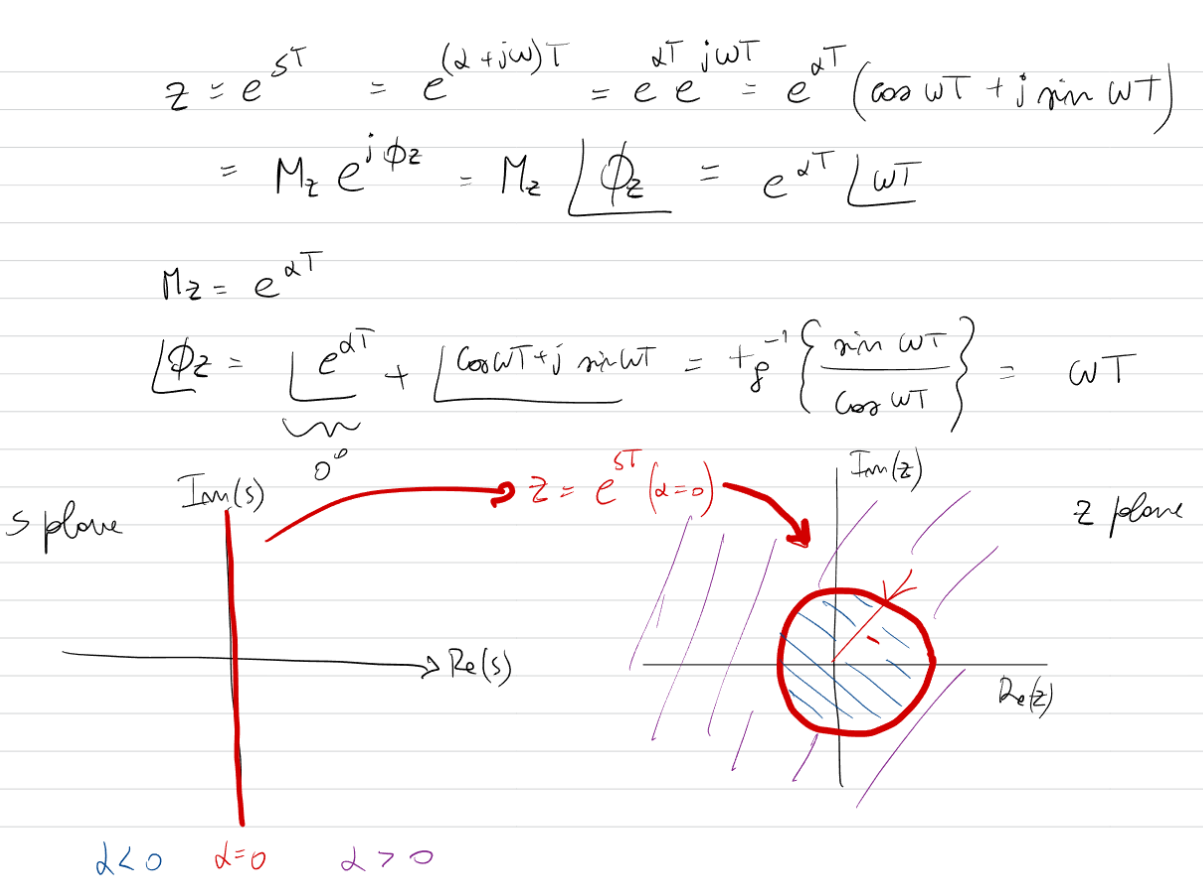 z = e^{sT} = e^{(α+jω)T} = e^{αT} e^{jωT} = e^{αT} (cos ωT + j sin ωT)
= M_z e^{jϕ_z} = M_z ∠ϕ_z = e^{αT} ∠ωT
M_z = e^{αT}
∠ϕ_z = ∠e^{αT} + ∠cos ωT + j sin ωT = tg^{-1} { sin ωT / cos ωT } = ωT
0°
s plane
Im(s)
z = e^{sT} (α=0)
Im(z)
z plane
Re(s)
Re(z)
α<0 α=0 α>0